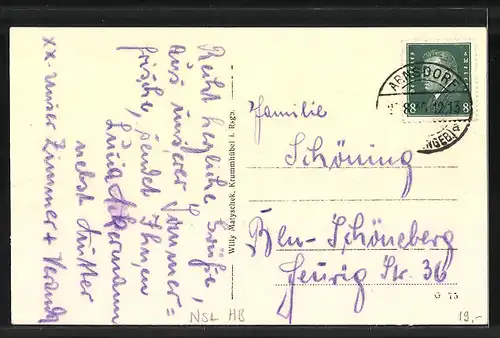 Recht herzliche Grüße,
aus unserer Sommer=
frische, sendet Ihnen
Luise Ackermann
nebst Mutter
xx. unser Zimmer + Veranda
Willy Matyschek, Krummhübel i. Rsgb.
ARNSDORF
12-13
8 8
Familie
Schöning
Bln-Schöneberg
Feurig Str. 36
G 75
NSL HB
19,-